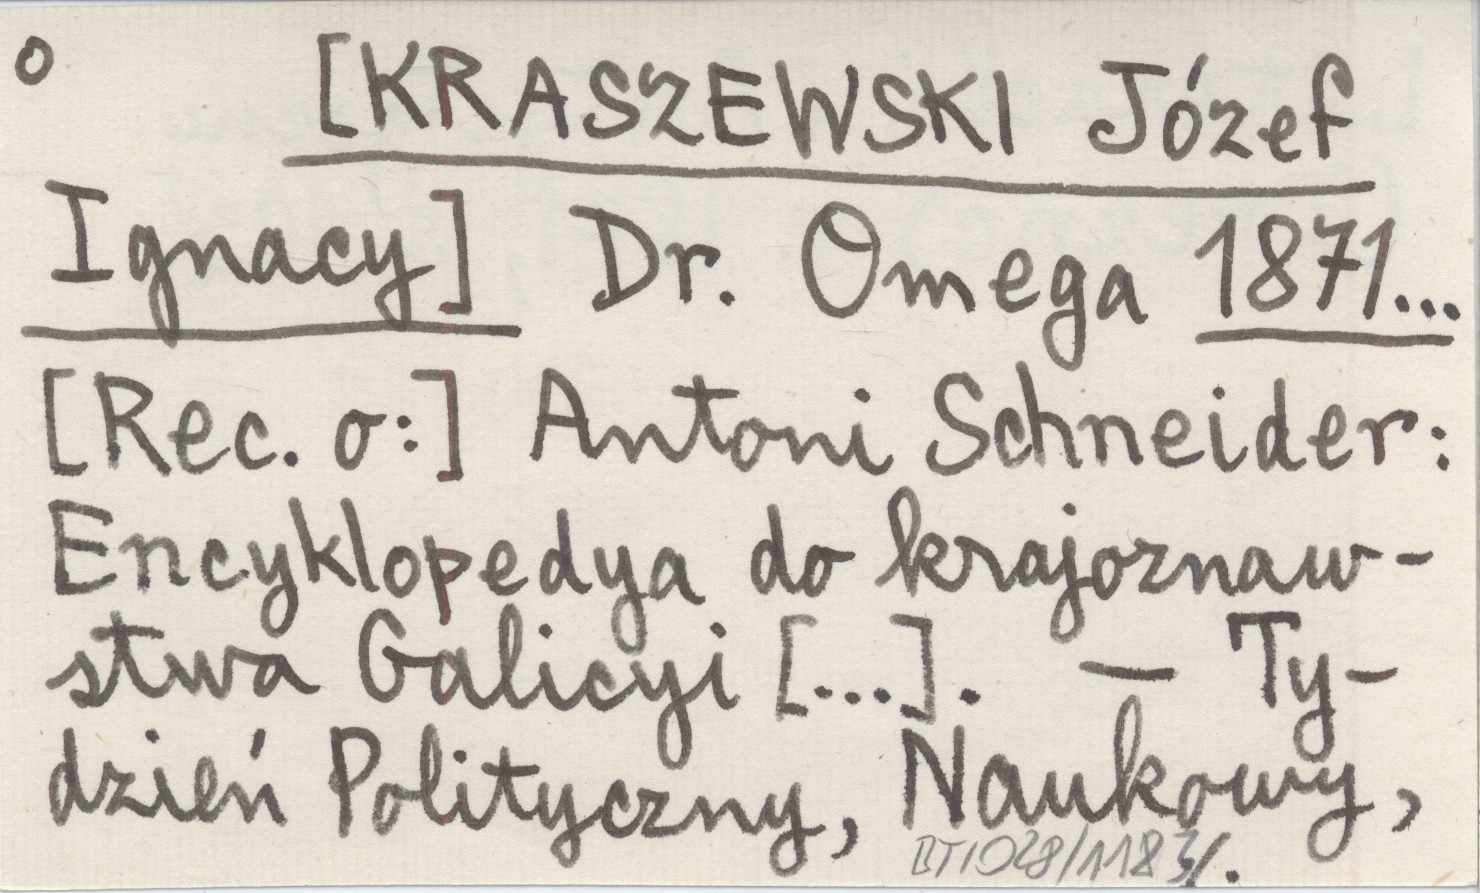 o [KRASZEWSKI Józef
Ignacy] Dr. Omega 1871...
[Rec. o:] Antoni Schneider:
Encyklopedya do krajoznaw-
stwa Galicyi [...]. — Ty-
dzień Polityczny, Naukowy,
./.